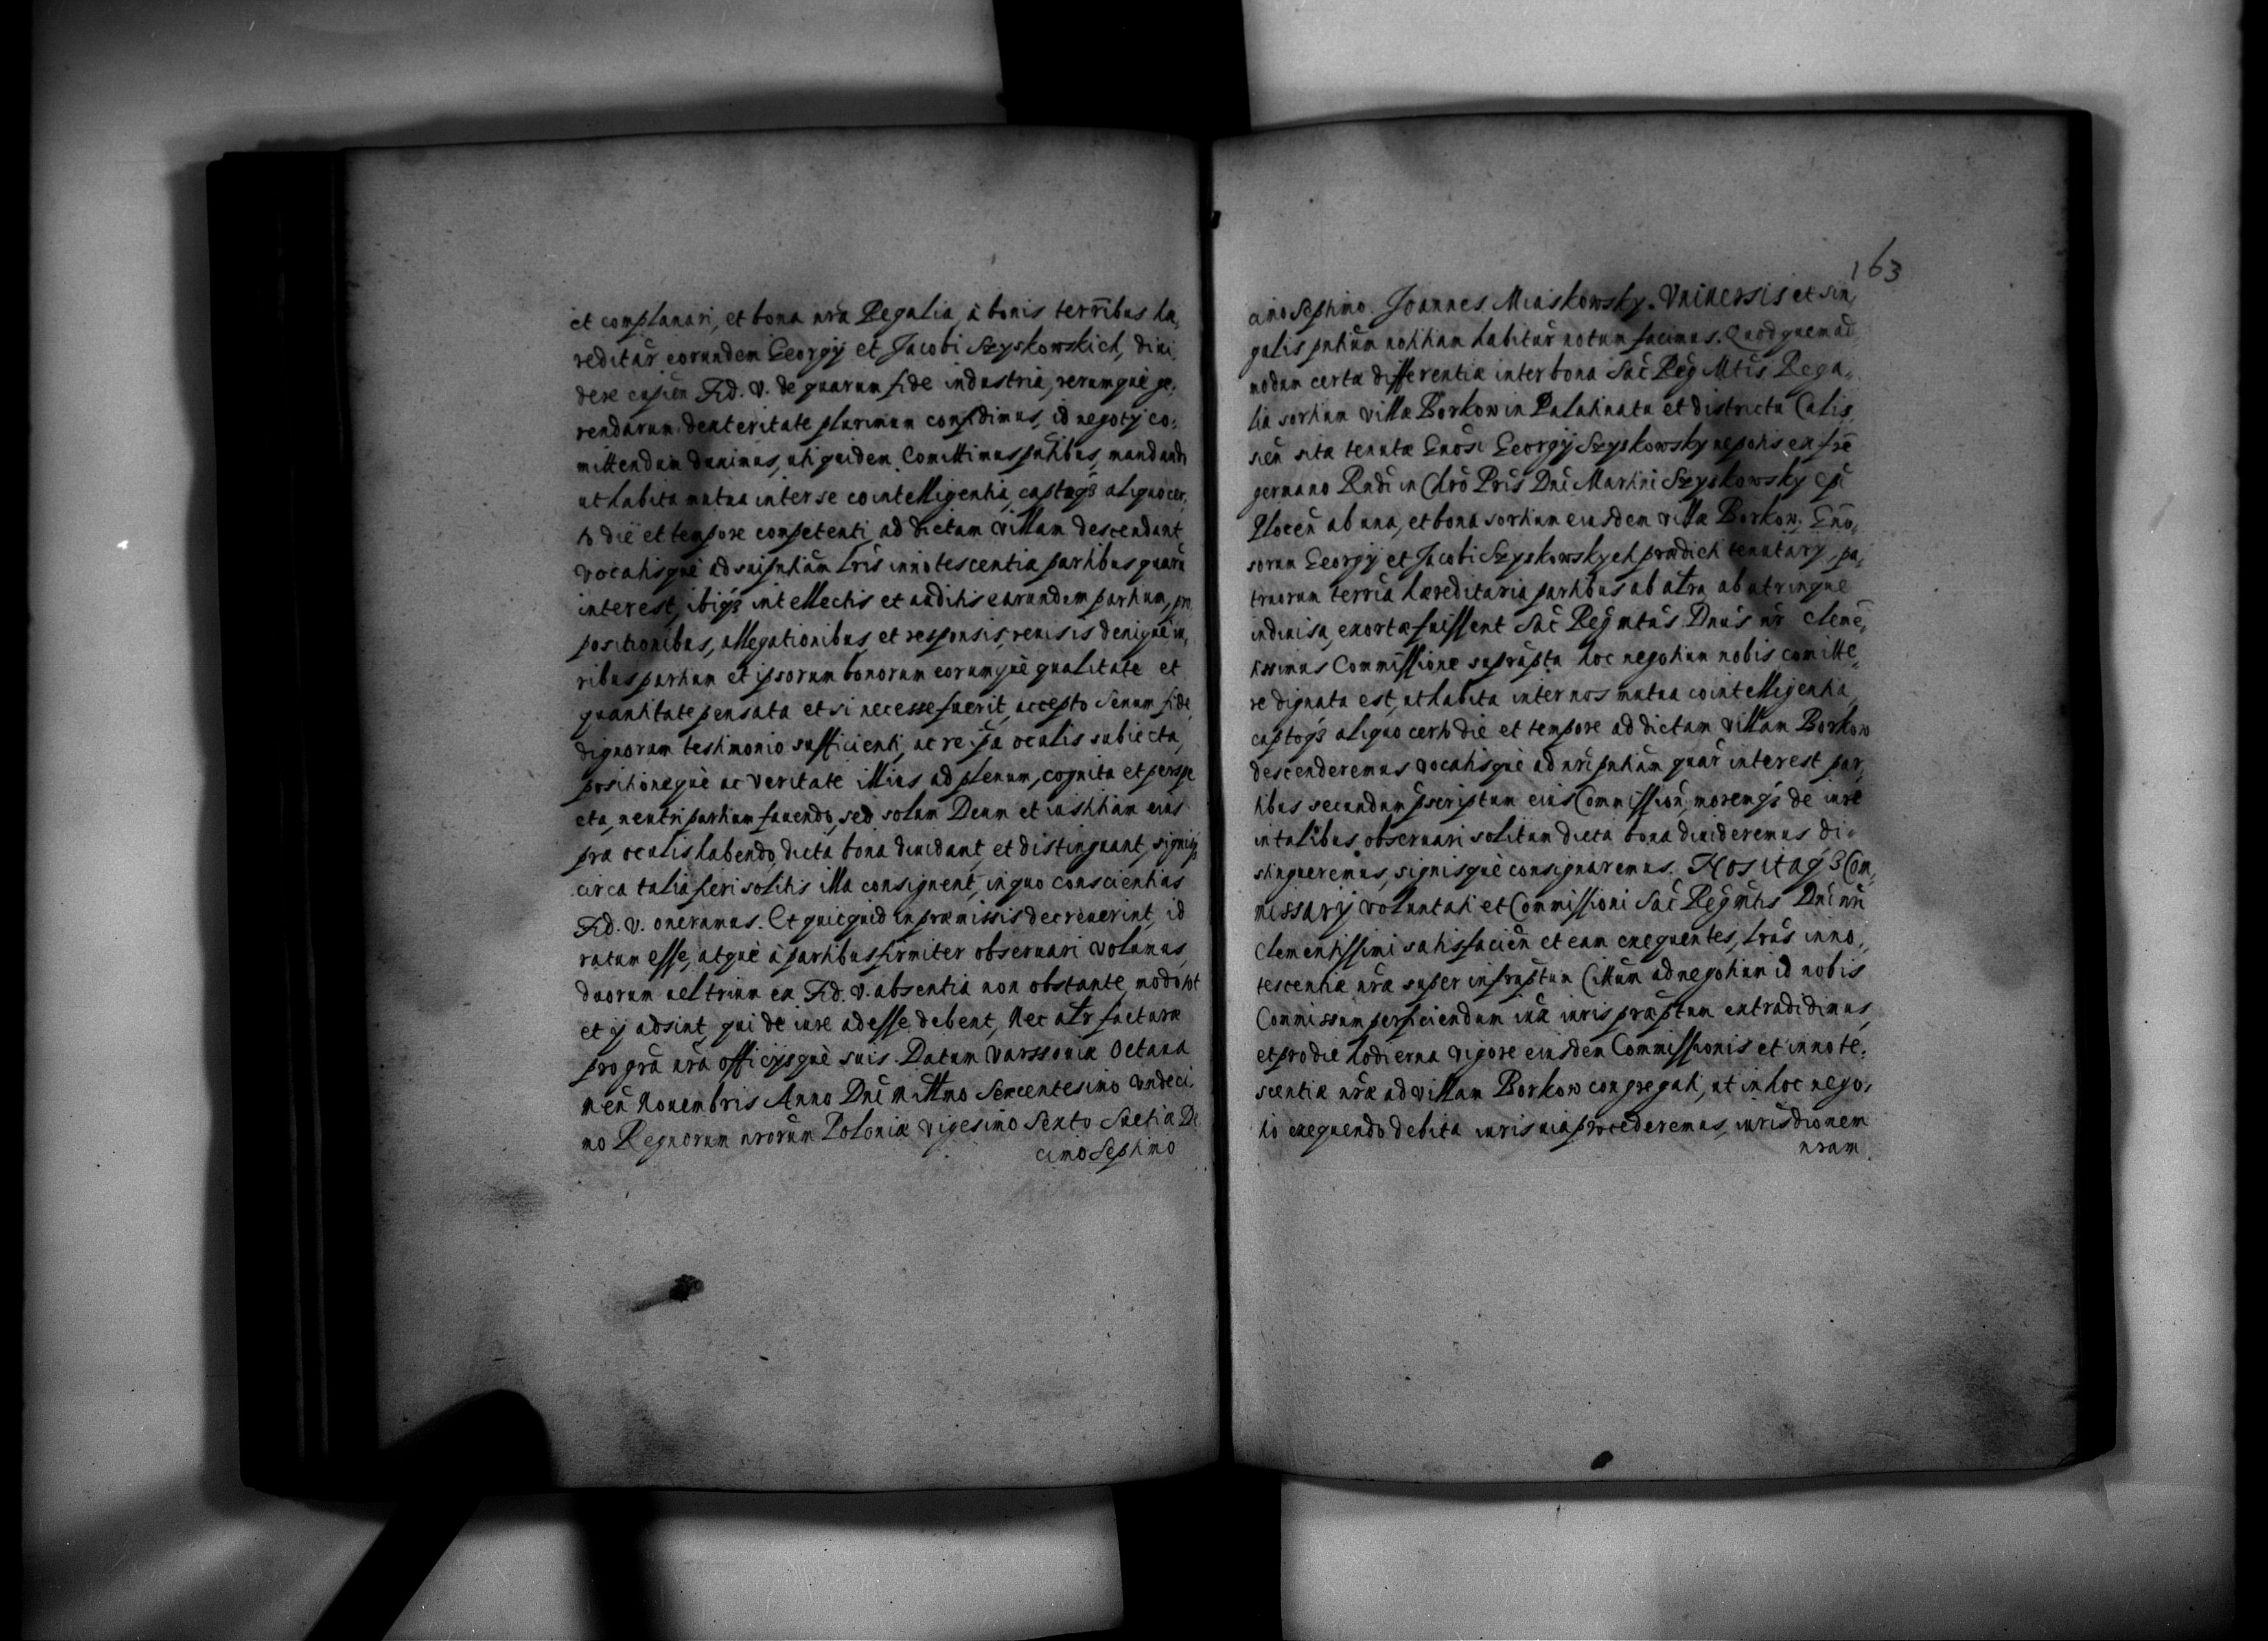 et complanari, et bona nr̃a Regalia, à bonis terrr̃ibus hæ,
reditar̃ eorundem Georgÿ et Jacobi Szyskowskich, diui,
dere cupien̄ Fid. V. de quarum fide industria, rerumquè ge,
rendarum dexteritate plurimum confidimus, id negotÿ co,
mittendum duximus, uti quidem Comittimus pn̄tibus, mandand
ut habita mutua inter se cointelligentia, captoq₃ aliquo cer,
to die et tempore competenti, ad dictam villam descendant
vocatisquè ad sui pn̄tiam lr̃is innotescentiæ partibus quarū
interest, ibiq₃ intellectis et auditis earundem partium, pro
positionibus, allegationibus, et responsis, reuisis deniquè iu,
ribus partium et ipsorum bonorum eorumquè qualitate et
quantitate pensata et si necesse fuerit, accepto Senum fide
dignorum testimonio sufficienti, ac re ip̄a oculis subiecta,
positionequè ac veritate illius ad plenum, cognita et perspe
cta, neutri partium fauendo, sed solum Deum et iustitiam eius
præ oculis habendo, dicta bona diuidant, et distinguant, signisq₃
circa talia fieri solitis illa consignent, in quo conscientias
Fid. V. oneramus. Et quicquid in præmissis decreuerint, id
ratum esse, atquè à partibus firmiter obseruari volumus,
duorum uel trium ex Fid. V. absentia non obstante, modo tot
et ÿ adsint, qui de iure adesse debent, Nec alr̃ facturæ
pro gr̃a nr̃a officÿsquè suis. Datum Varssouiæ Octaua
men̄ Nouembris Anno Dn̄i Milmo Sexcentesimo Undeci,
mo Regnorum nrorum Poloniæ vigesimo Sexto Suetiæ De
cimo Septimo
163
cimo Septimo. Joannes Miaskowsky. Vniuersis et sin,
gulis pn̄tium notitiam habitur̃ notum facimus. Quod quemad
modum certæ differentiæ inter bona Sac̄ Reg̃ Mtis Rega,
lia sortium villæ Borkow in Palatinatu et districtu Calis,
sien̄ sita tenutæ Gn̄osi Georgÿ Szyskowsky nepotis ex fr̃e
germano Rndi in Chr̄o Pr̃is Dn̄i Martini Szyskowsky Ep̄i
Plocen̄ ab una, et bona sortium eiusdem villæ Borkow. Gn̄o,
sorum Georgÿ et Jacobi Szyskowskych prædicti tenutarÿ, pa,
truorum terr̃ia hæreditaria partibus ab altra ab utrinque
indiuisa, exortæ fuissent Sac̄ Reg̃ mtas Dnus nr̃ Cleme,
tissimus Commissione suprapta hoc negotium nobis comitte,
re dignata est, ut habita inter nos mutua cointelligentia
captoq₃ aliquo certo die et tempore ad dictam villam Borkow
descenderemus vocatisquè ad nr̃i pn̄tiam quar̃ interest par,
tibus secundum p̄scriptum eius Commission̄, moremq₃ de iure
in talibus obseruari solitum dicta bona diuideremus, di=
stingueremus, signisquè consignaremus. Nos itaq₃ Com,
missarÿ voluntati et Commissioni Sac̄ Reg̃ mtis Dn̄i nr̃i
Clementissimi satisfacien̄ et eam exequentes, lr̃as inno,
tescentiæ nr̃æ super infraptum Cittum ad negotium id nobis
Commissum perficiendum iux̄ iuris præptum extradidimus,
et pro die hodierna vigore eiusdem Commissionis et innote,
scentiæ nr̃æ ad villam Borkow congregati, ut in hoc nego,
tio exequendo debita iuris uia procederemus, iurisdionem
nram